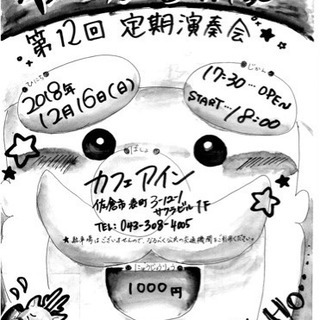 第12回 定期演奏会
ひにち
2018年
12月16日(日)
じかん
17:30…OPEN
START…18:00
ばしょ
カフェアイン
佐倉市表町3-12-1
サクラビル1F
TEL: 043-308-4005
★駐車場はございませんので、なるべく公共の交通機関をご利用ください。
にゅうじょうりょう
1000円
HO...